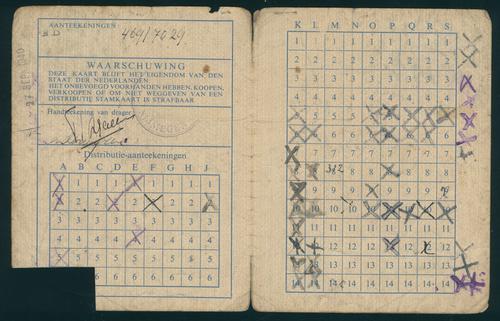 AANTEEKENINGEN
BD
469/7029
WAARSCHUWING
DEZE KAART BLIJFT HET EIGENDOM VAN DEN
STAAT DER NEDERLANDEN.
HET ONBEVOEGD VOORHANDEN HEBBEN, KOOPEN,
VERKOOPEN OF OM NIET WEGGEVEN VAN EEN
DISTRIBUTIE STAMKAART IS STRAFBAAR.
Handteekening van drager:
Distributie-aanteekeningen
A B C D E F G H J
1 1 1 1 1 1 1
2 2 2 2 2 2 2 2
3 3 3 3 3 3 3 3 3
4 4 4 4 4 4 4 4
5 5 5 5 5 5 5
6 6 6 6 6 6
K L M N O P Q R S
1 1 1 1 1 1 1 1 1
2 2 2 2 2 2 2 2 2
3 3 3 3 3 3 3 3 3
4 4 4 4 4 4 4 4 4
5 5 5 5 5 5 5 5 5
6 6 6 6 6 6 6 6 6
7 7 7 7 7 7 7 7 7
8 8 382 8 8 8 8 8
9 9 9 9 9 9 9 9
10 10 10 10 10 10 10 10 10
11 11 11 11 11 11 11 11 11
12 12 12 12 12 12 12 12
13 13 13 13 13 13 13 13 13
14 14 14 14 14 14 14 14